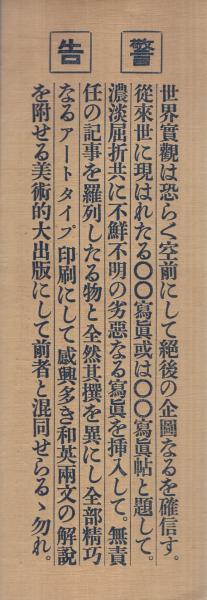 警告
世界實觀は恐らく空前にして絕後の企圖なるを確信す。
從來世に現はれたる〇〇寫眞或は〇〇寫眞帖と題して。
濃淡屈折共に不鮮不明の劣惡なる寫眞を挿入して。無責
任の記事を羅列したる物と全然其撰を異にし全部精巧
なるアートタイプ印刷にして感興多き和英兩文の解說
を附せる美術的大出版にして前者と混同せらるゝ勿れ。